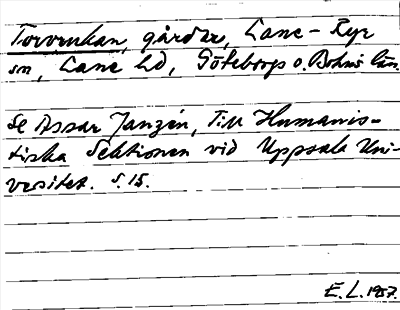 Torvrukan, gårdar, Lane-Ryr
sn, Lane hd, Göteborgs o. Bohus län.
Se Assar Janzén, Till Humanis-
tiska Sektionen vid Uppsala Uni-
versitet. s. 15.
E. L. 1957.